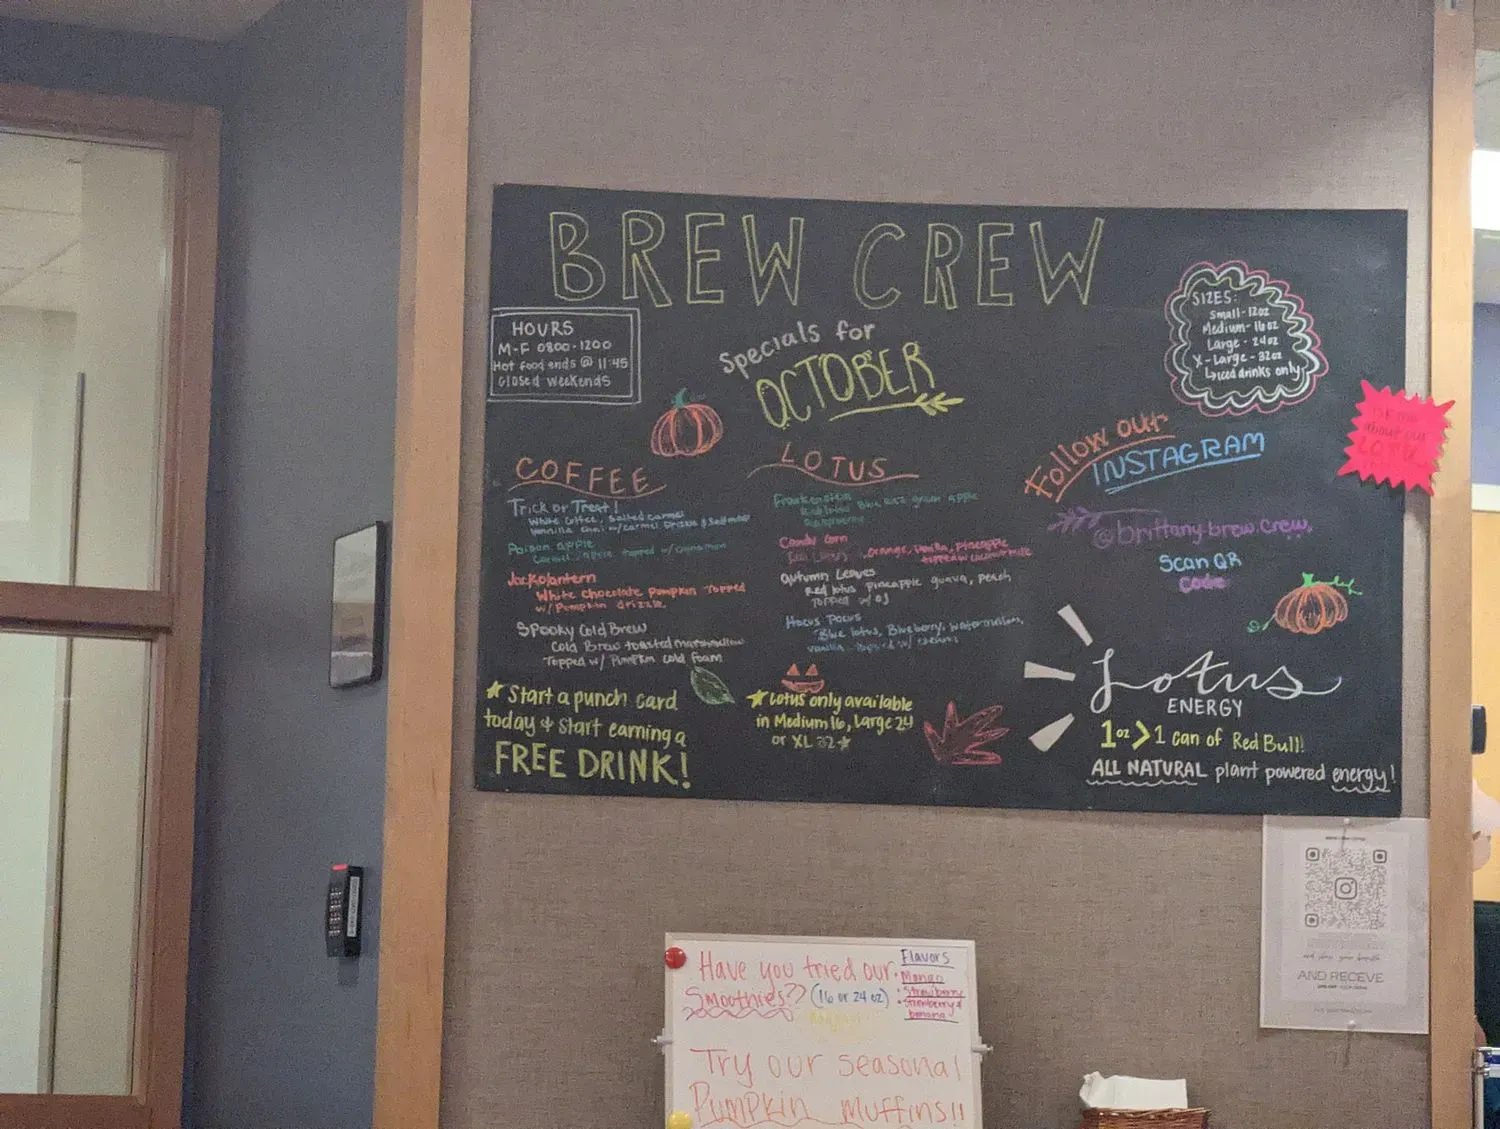 BREW CREW
HOURS
M-F 0800-1200
Hot food ends @ 11:45
Closed weekends
Specials for
OCTOBER
SIZES:
Small - 12oz
Medium - 16oz
Large - 24oz
X-Large - 32oz
iced drinks only
COFFEE
Trick or Treat!
White Coffee, Salted Carmel
Vanilla chai w/carmel Drizzle &
Poison apple
Caramel, apple topped w/ cinnamon
Jackolantern
White Chocolate Pumpkin Topped
w/ Pumpkin drizzle
Spooky Cold Brew
Cold Brew toasted marshmallow
Topped w/ Pumpkin cold foam
★ Start a punch card
today & start earning a
FREE DRINK!
LOTUS
Frankenstein
Blue Razz green apple
Raspberry
Candy Corn
Orange, Vanilla, pineapple
Autumn Leaves
Red lotus pineapple guava, peach
Topped w/ OJ
Hocus Pocus
Blue lotus, Blueberry, watermelon,
vanilla topped w/ cream
★ Lotus only available
in Medium 16, Large 24
or XL 32 ★
Follow our
INSTAGRAM
@brittany.brew.crew.
Scan QR
Code
Lotus
ENERGY
1oz > 1 can of Red Bull!
ALL NATURAL plant powered energy!
about our
AND RECEVE
Have you tried our
Smoothies?? (16 or 24 oz)
Flavors
• Mango
• Strawberry
• Strawberry &
banana
Try our seasonal
Pumpkin muffins!!